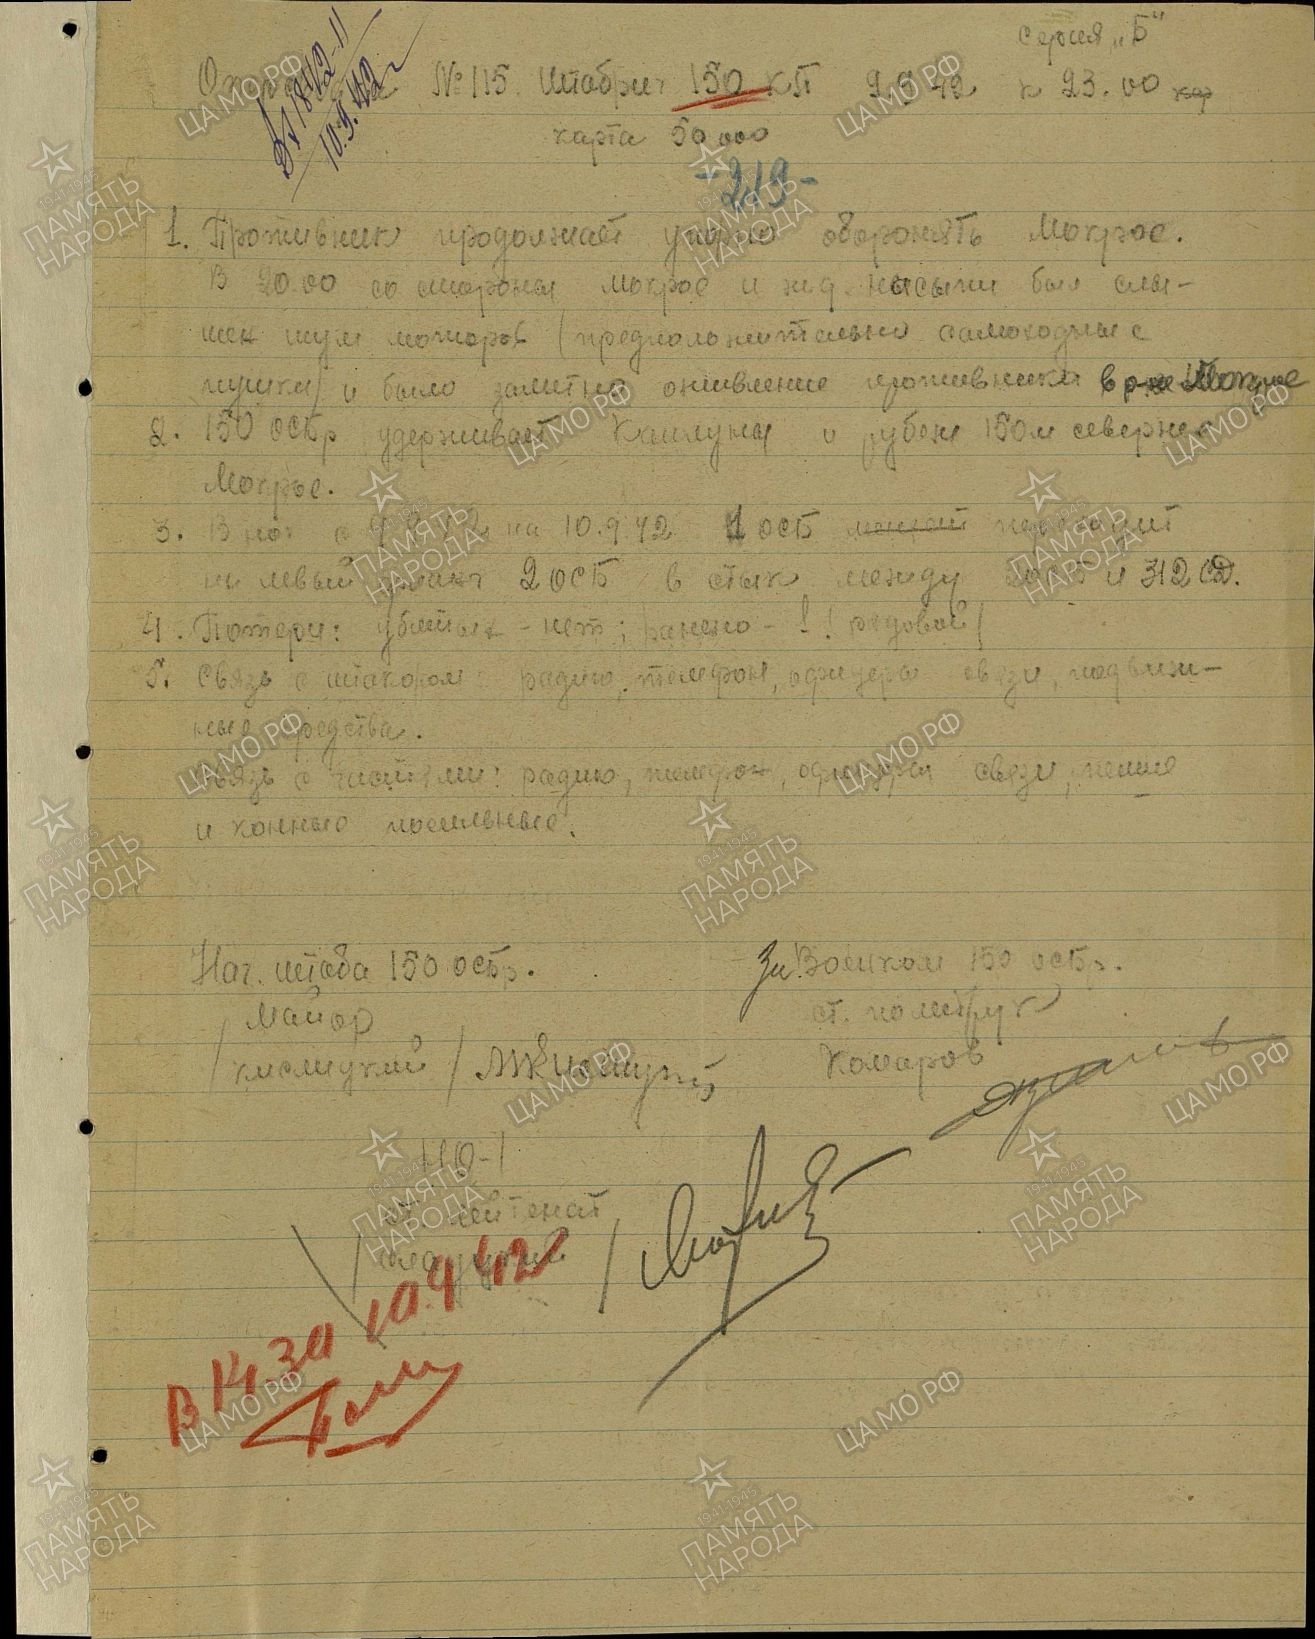 Серия "Б"
№ 115. Штабриг 150 КП 9 9 42 к 23.00
10.9.42
карта 50 000
-219-
1. Противник продолжает упорно оборонять Мокрое.
В 20.00 со стороны Мокрое и жд. насыпи был слы-
шен шум моторов (предположительно самоходные
пушки) и было заметно оживление противника в р-не Мокрое
2. 150 ОСБр удерживает и рубеж 150м севернее
Мокрое.
3. В ноч с 9.9.42 на 10.9.42 1 ОСБ переходит
на левый фланг 2 ОСБ в стык между 2 ОСБ и 312 СД.
4. Потери: убитых - нет; ранено - 1 (рядовой)
5. Связь с штакором: радио, телефон, офицеры связи, подвиж-
ные средства.
Связь с частями: радио, телефон, офицеры связи, пешие
и конные посыльные.
Нач. штаба 150 ОСБр. За Военком 150 ОСБр.
Майор ст. политрук
/Кислицкий/ Комаров
НО-1
ст. лейтенат
В 14.30 10.9.42